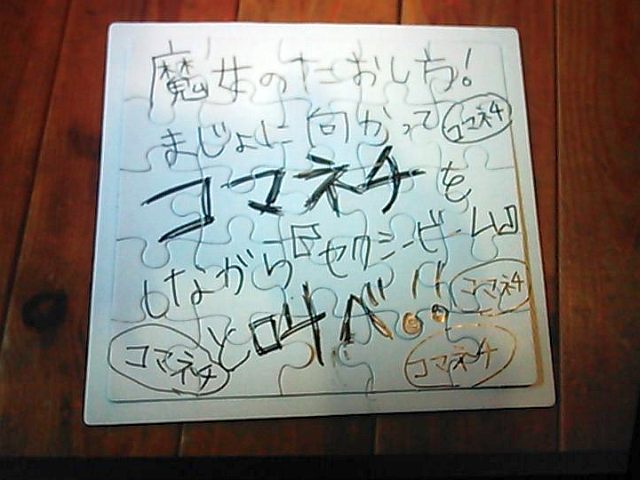 魔女のたおし方!
まじょに向かって
コマネチ
コマネチを
しながら『セクシービーム』
コマネチ
と叫べ!!
コマネチ
コマネチ